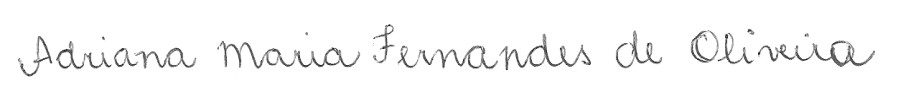 Adriana Maria Fernandes de Oliveira